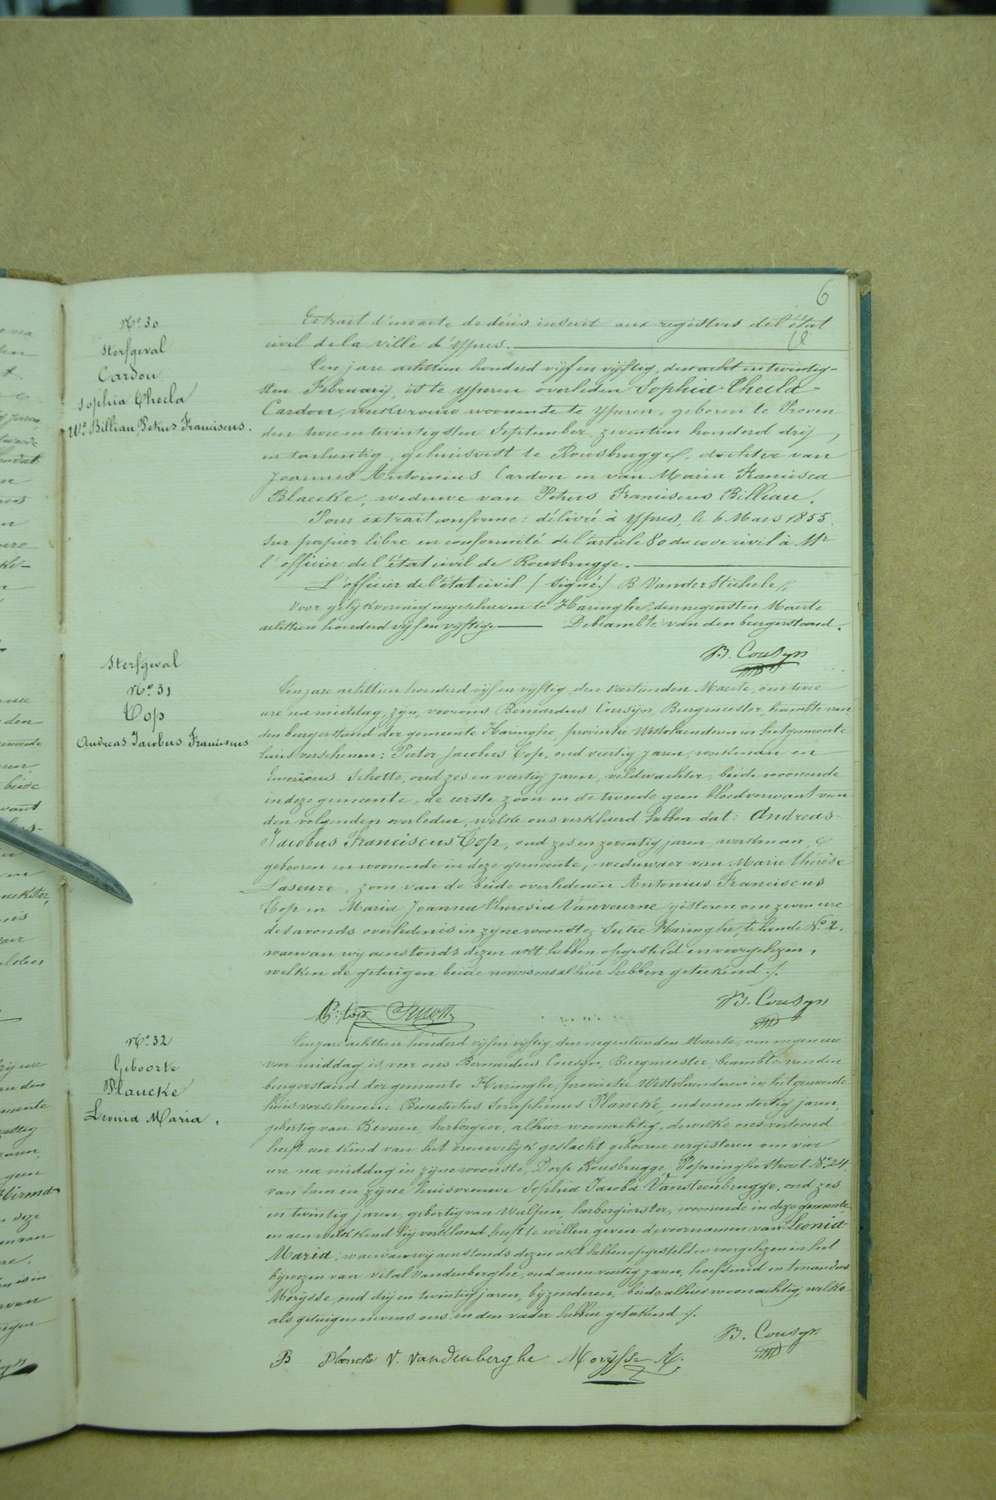 6
No 30
Sterfgeval
Cardon
Sophia Thecla
We Billiau Petrus Franciscus.
Extrait d'un acte de décès inscrit aux registres de l'état
civil de la ville d'Ypres.
L'en jare achttien honderd vijf en vijftig, den acht en twintig-
sten February, is te Yperen overleden Sophia-Thecla-
Cardon, werkvrouw woonende te Yperen, geboren te Proven
den twee en twintigsten September zeventien honderd drij
en tachentig, gehuisvest te Rousbrugge, dochter van
Joannes Antonius Cardon en van Maria Francisca
Blaeske, weduwe van Petrus Franciscus Billiau.
Pour extrait conforme: délivré à Ypres, le 6 Mars 1855.
sur papier libre en conformité de l'article 80 du code civil à Mr
l'officier de l'état civil de Rousbrugge.
L'officier de l'état civil (signé) B Vander Stichele,
Voor gelijkvormig ingeschreven te Haringhe, den negensten Maerte
achttien honderd vijf en vijftig. De Beambte van den burgerstand.
B. Cousyn
Sterfgeval
No 31
Top
Andreas Jacobus Franciscus
L'en jare achttien honderd vijf en vijftig, den Maerte, om twee
ure na middag, zyn, voor ons Bernardus Cousyn, Burgmeester, beambte van
den burgerstand der gemeente Haringhe, provintie Westvlaenderen in het gemeente
huis verschenen: Pieter Jacobus Top, oud veertig jaren, werkman en
Schotte, oud zes en veertig jaren, veldwachter, beide woonende
in deze gemeente, de eerste zoon en de tweede geen bloedverwant van
den volgenden overleden, welke ons verklaerd hebben dat: Andreas-
Jacobus Franciscus Top, oud zes en zeventig jaren werkman,
geboren en woonende in deze gemeente, weduwaer van Marie Thérèse
Laseure, zoon van de beide overledenen Antonius Franciscus
Top en Maria Joanna Theresia Vanveurne, gisteren om zeven ure
des avonds overleden is in zyne woonste, Haringhe, No 2.
waervan wy aenstonds dezen akt hebben opgesteld en voorgelezen,
welken de getuigen beide nevens ons alhier hebben geteekend ./.
P: Top B. Cousyn
No 32
Geboorte
Plancke
Leonia Maria.
L'en jare achttien honderd vijf en vijftig, den negentienden Maerte, om negen ure
voor middag is, voor ons Bernardus Cousyn, Burgmeester, beambte van den
burgerstand der gemeente Haringhe, provintie Westvlaenderen in het gemeente
huis verschenen: Benedictus Seraphinus Plancke, oud een en dertig jaren,
geboortig van Beveren, herbergier, alhier woonachtig, dewelke ons vertoond
heeft een kind van het vrouwelyk geslacht geboren eergisteren om vier
ure na middag in zyne woonste, Dorp Rousbrugge, Poperinghe straet No 24
van hem en zyne huisvrouwe Sophia Jacoba Vansteenbrugge, oud zes
en twintig jaren, geboortig van Wulpen, herbergierster, woonende in deze gemeente,
en aen welk kind hy verklaerd heeft te willen geven de voornamen van Leonia
Maria; waervan wy aenstonds dezen akt hebben opgesteld en voorgelezen in het
bywezen van Vital Vandenberghe, oud een en veertig jaren, hoefsmid en Amandus
Morysse, oud drij en twintig jaren, byzonderen, beide alhier woonachtig, welke
als getuigen nevens ons en den vader hebben geteekend ./.
B. Cousyn
B Plancke V. Vandenberghe Morysse A.